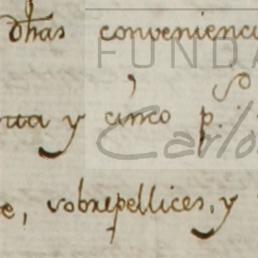 dhas convenienci
FUNDA
nta y cinco p.
Carlo
e, sobrepellices, y